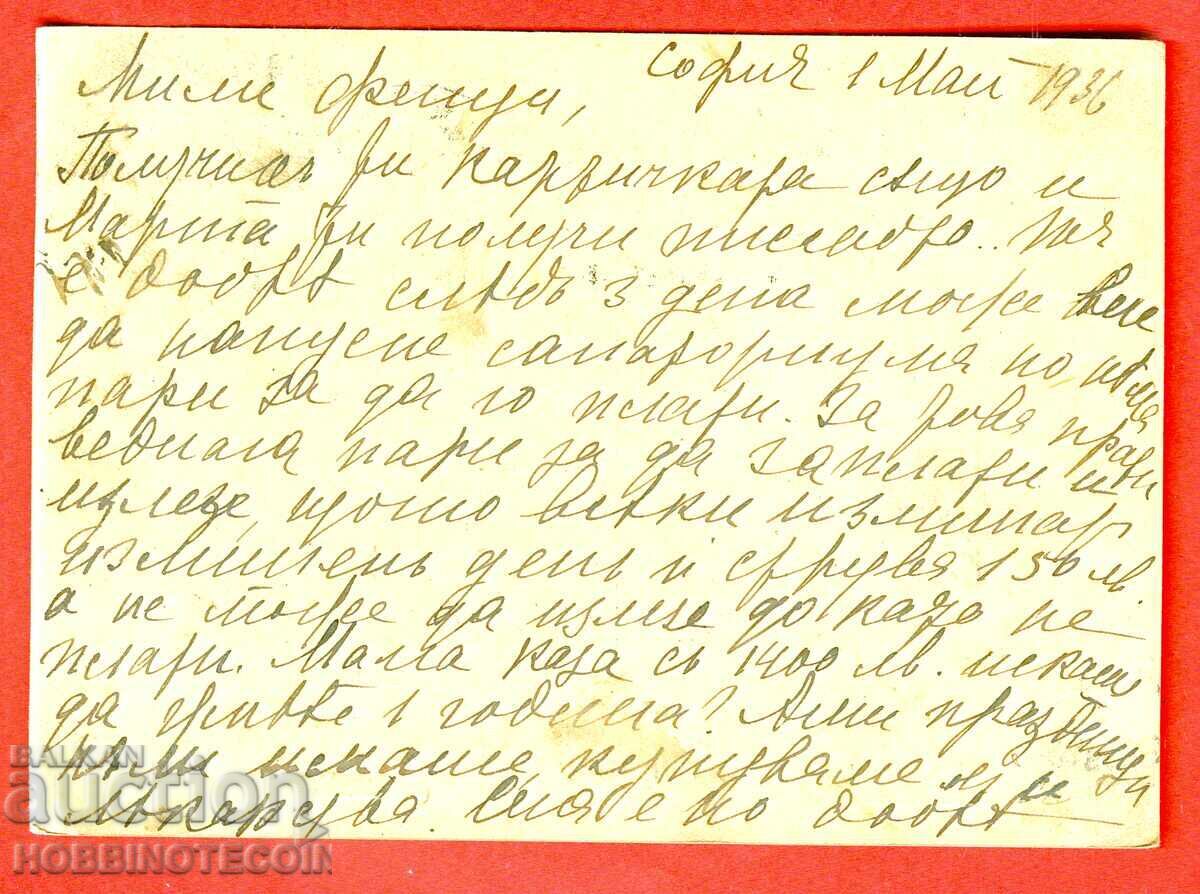 София 1 Май 1936
Мили Фенци,
Получихъ ви картичката също и
Марта ви получи писмото.. Тя
е добрѣ слѣдъ 3 дена може вече
да напусне санаториумя но нѣма
пари за да го плати. За това прати
веднага пари за да заплати и
излезе, щото всѣки изминат
излишенъ день и струва 150 лв.
а не може да излезе докато не
плати. Мама каза съ 1400 лв. искаш
да живѣе 1 година? Ами
искаше, купуваме и
лѣкарства. Сия е по добрѣ
BALKAN
auction
HOBBINOTECOIN